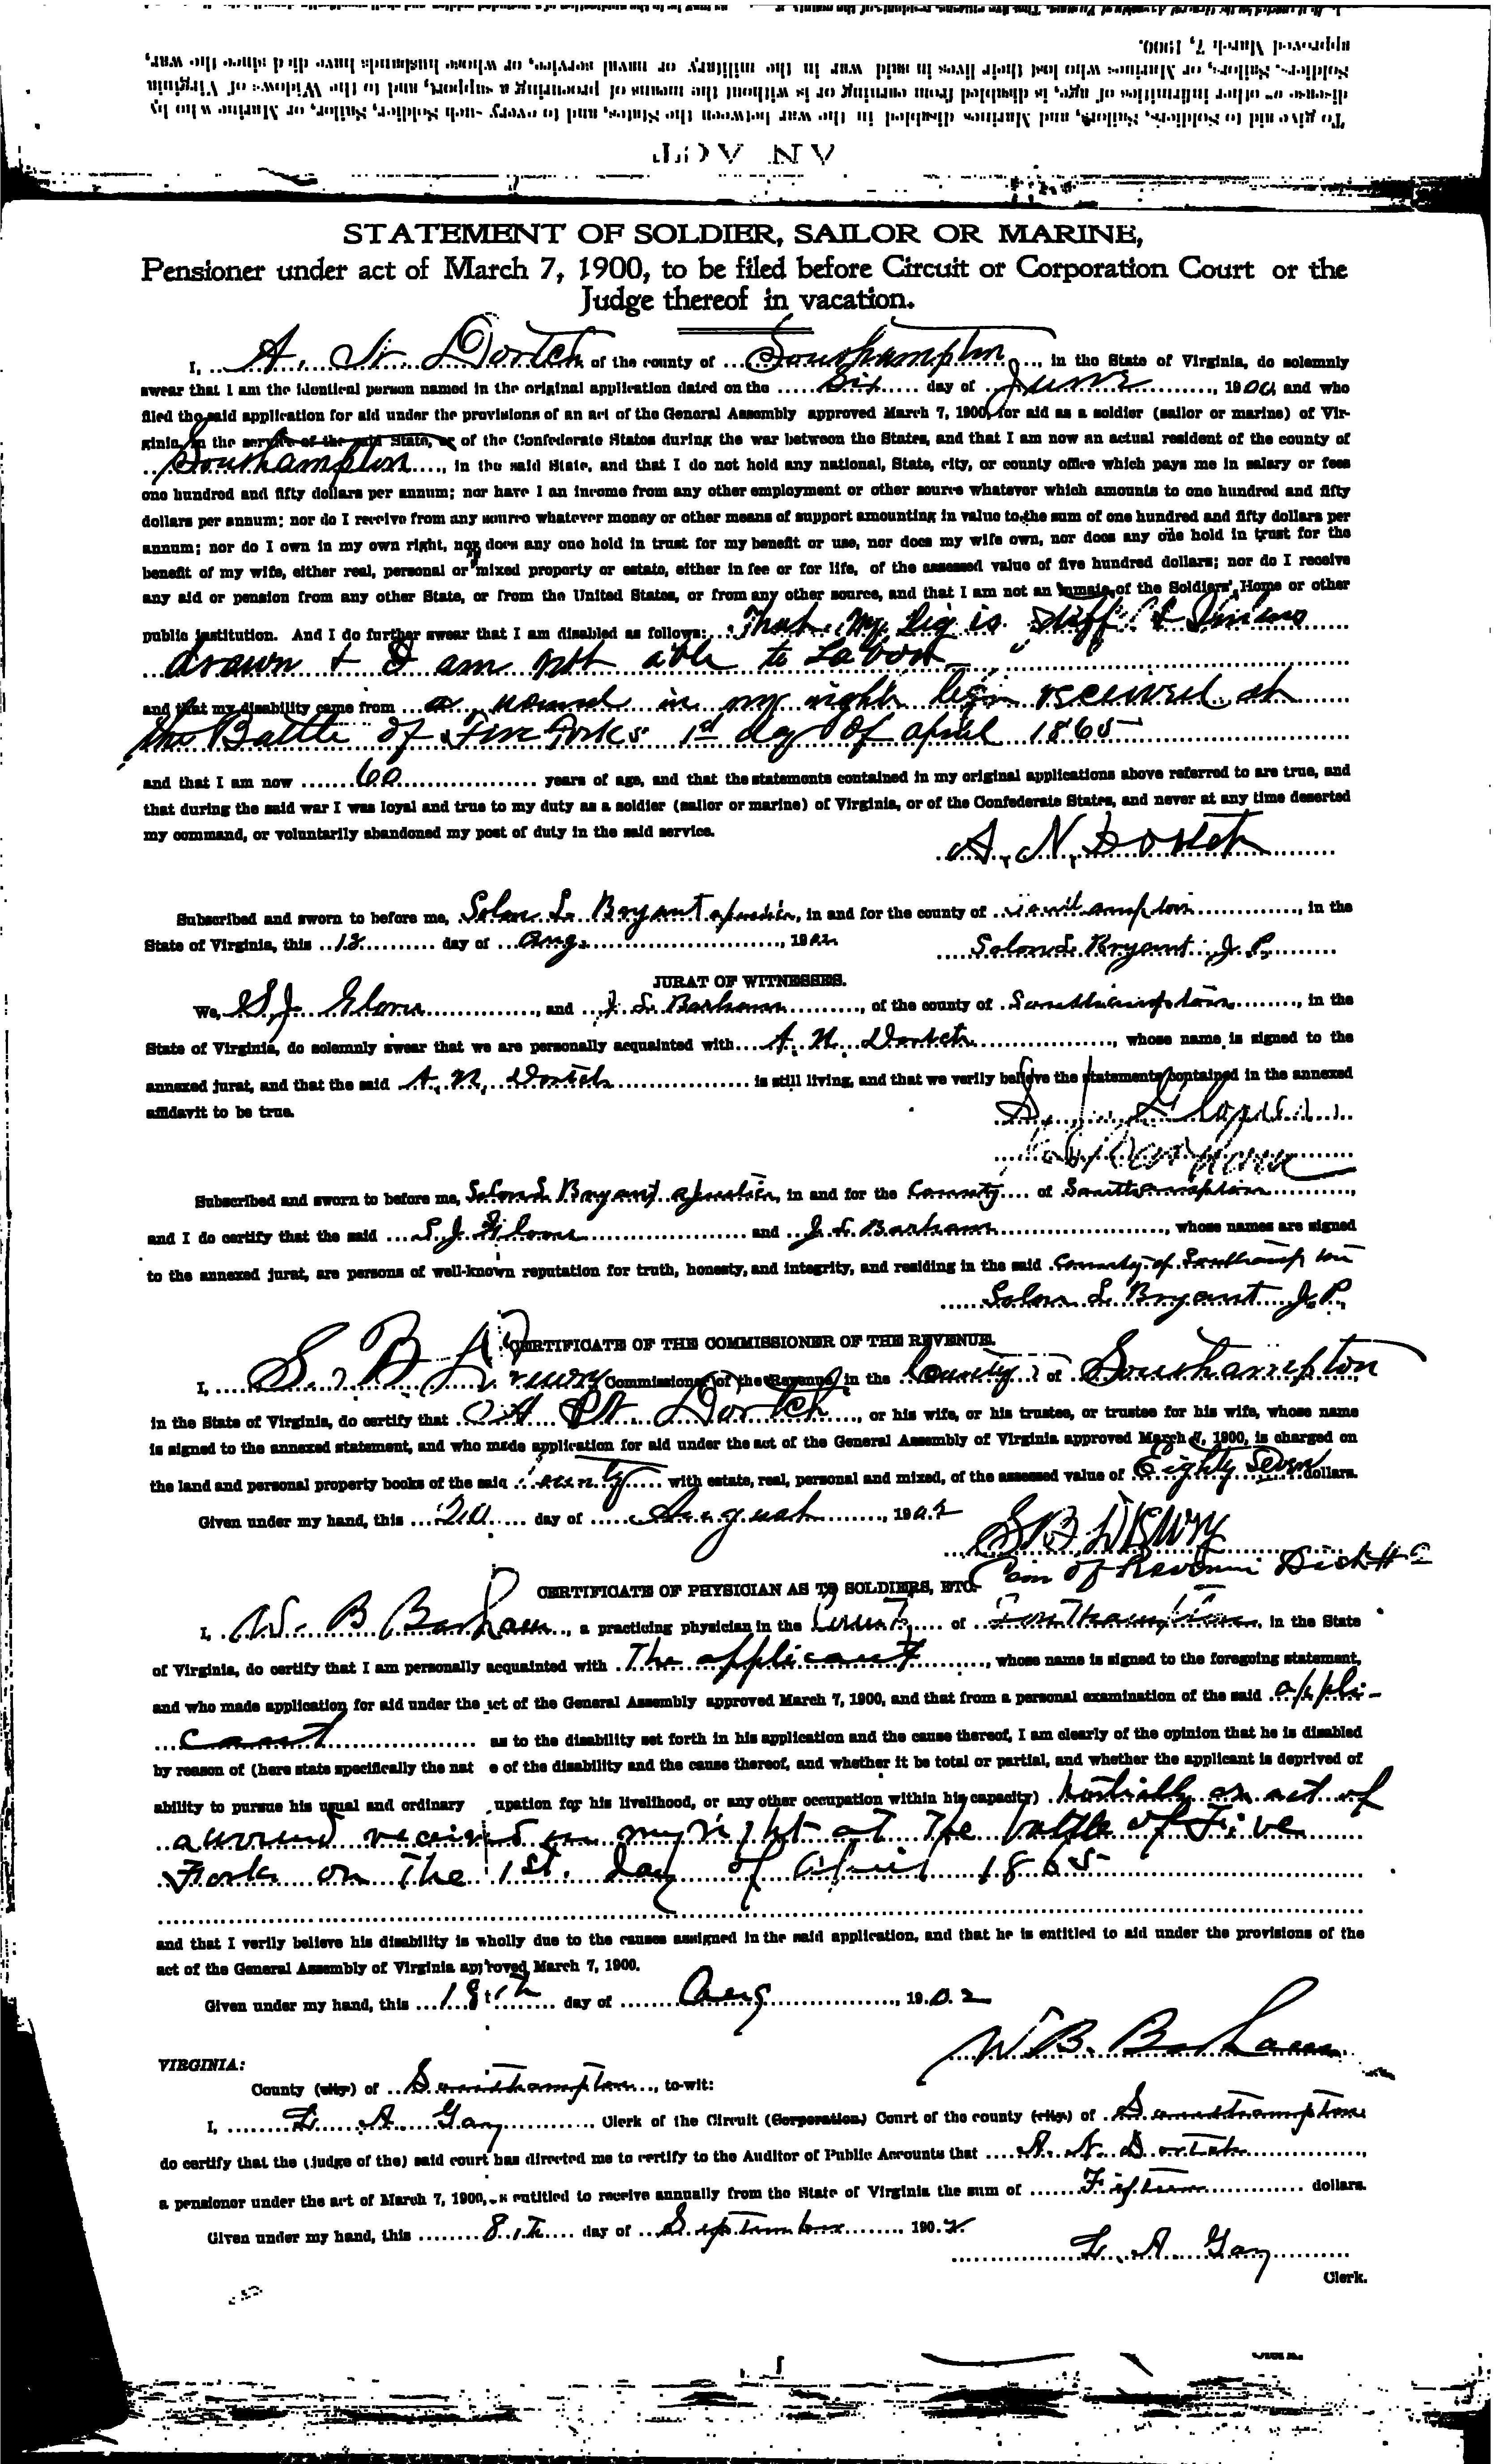 To give aid to Soldiers, Sailors, and Marines disabled in the war between the States, and to every such Soldier, Sailor, or Marine who by
disease or other infirmities of age, is disabled from earning or is without the means of procuring a support, and to the Widows of Virginia
Soldiers, Sailors, or Marines who lost their lives in said war in the military or naval service, or whose husbands have died since the war,
approved March 7, 1900.
AN ACT
STATEMENT OF SOLDIER, SAILOR OR MARINE,
Pensioner under act of March 7, 1900, to be filed before Circuit or Corporation Court or the
Judge thereof in vacation.
I, A. N. Dortch of the county of Southampton, in the State of Virginia, do solemnly
swear that I am the identical person named in the original application dated on the six day of June, 1900, and who
filed the said application for aid under the provisions of an act of the General Assembly approved March 7, 1900, for aid as a soldier (sailor or marine) of Vir-
ginia, in the service of the said State, or of the Confederate States during the war between the States, and that I am now an actual resident of the county of
Southampton, in the said State, and that I do not hold any national, State, city, or county office which pays me in salary or fees
one hundred and fifty dollars per annum; nor have I an income from any other employment or other source whatever which amounts to one hundred and fifty
dollars per annum; nor do I receive from any source whatever money or other means of support amounting in value to the sum of one hundred and fifty dollars per
annum; nor do I own in my own right, nor does any one hold in trust for my benefit or use, nor does my wife own, nor does any one hold in trust for the
benefit of my wife, either real, personal or mixed property or estate, either in fee or for life, of the assessed value of five hundred dollars; nor do I receive
any aid or pension from any other State, or from the United States, or from any other source, and that I am not an inmate of the Soldiers' Home or other
public institution. And I do further swear that I am disabled as follows: That my Leg is stiff &
drawn & I am not able to Labor
and that my disability came from a wound in my right leg received at
the Battle of Five Forks 1st day of april 1865
and that I am now 60 years of age, and that the statements contained in my original applications above referred to are true, and
that during the said war I was loyal and true to my duty as a soldier (sailor or marine) of Virginia, or of the Confederate States, and never at any time deserted
my command, or voluntarily abandoned my post of duty in the said service.
A. N. Dortch
Subscribed and sworn to before me, Solon L. Bryant a justice, in and for the county of Southampton, in the
State of Virginia, this 12 day of Aug., 1902
Solon L. Bryant, J. P.
JURAT OF WITNESSES.
We, S. J. and J. L. Barham, of the county of Southampton, in the
State of Virginia, do solemnly swear that we are personally acquainted with A. N. Dortch, whose name is signed to the
annexed jurat, and that the said A. N. Dortch is still living, and that we verily believe the statements contained in the annexed
affidavit to be true.
Subscribed and sworn to before me, Solon L. Bryant a justice, in and for the County of Southampton,
and I do certify that the said S. J. and J. L. Barham, whose names are signed
to the annexed jurat, are persons of well-known reputation for truth, honesty, and integrity, and residing in the said County of Southampton
Solon L. Bryant J. P.
CERTIFICATE OF THE COMMISSIONER OF THE REVENUE.
I, S. B. Drewry Commissioner of the Revenue in the County of Southampton
in the State of Virginia, do certify that A N Dortch, or his wife, or his trustee, or trustee for his wife, whose name
is signed to the annexed statement, and who made application for aid under the act of the General Assembly of Virginia approved March 7, 1900, is charged on
the land and personal property books of the said County with estate, real, personal and mixed, of the assessed value of Eighty Seven dollars.
Given under my hand, this 20 day of August, 1902
S B Drewry
Com of Revenue Dist #
CERTIFICATE OF PHYSICIAN AS TO SOLDIERS, ETC.
I, W. B Barham, a practicing physician in the County of Southampton, in the State
of Virginia, do certify that I am personally acquainted with The applicant, whose name is signed to the foregoing statement,
and who made application for aid under the act of the General Assembly approved March 7, 1900, and that from a personal examination of the said appli-
cant as to the disability set forth in his application and the cause thereof, I am clearly of the opinion that he is disabled
by reason of (here state specifically the nat e of the disability and the cause thereof, and whether it be total or partial, and whether the applicant is deprived of
ability to pursue his usual and ordinary upation for his livelihood, or any other occupation within his capacity) Partially on act of
a wound received in my right at The battle of Five
Forks on The 1st. day of April 1865
and that I verily believe his disability is wholly due to the causes assigned in the said application, and that he is entitled to aid under the provisions of the
act of the General Assembly of Virginia approved March 7, 1900.
Given under my hand, this 18th day of Aug, 1902
W B. Barham
VIRGINIA:
County (city) of Southampton, to-wit:
I, L. A. Gay Clerk of the Circuit (Corporation) Court of the county (city) of Southampton
do certify that the (judge of the) said court has directed me to certify to the Auditor of Public Accounts that A. N. Dortch,
a pensioner under the act of March 7, 1900, is entitled to receive annually from the State of Virginia the sum of Fifteen dollars.
Given under my hand, this 8th day of September, 1902.
L. A. Gay
Clerk.